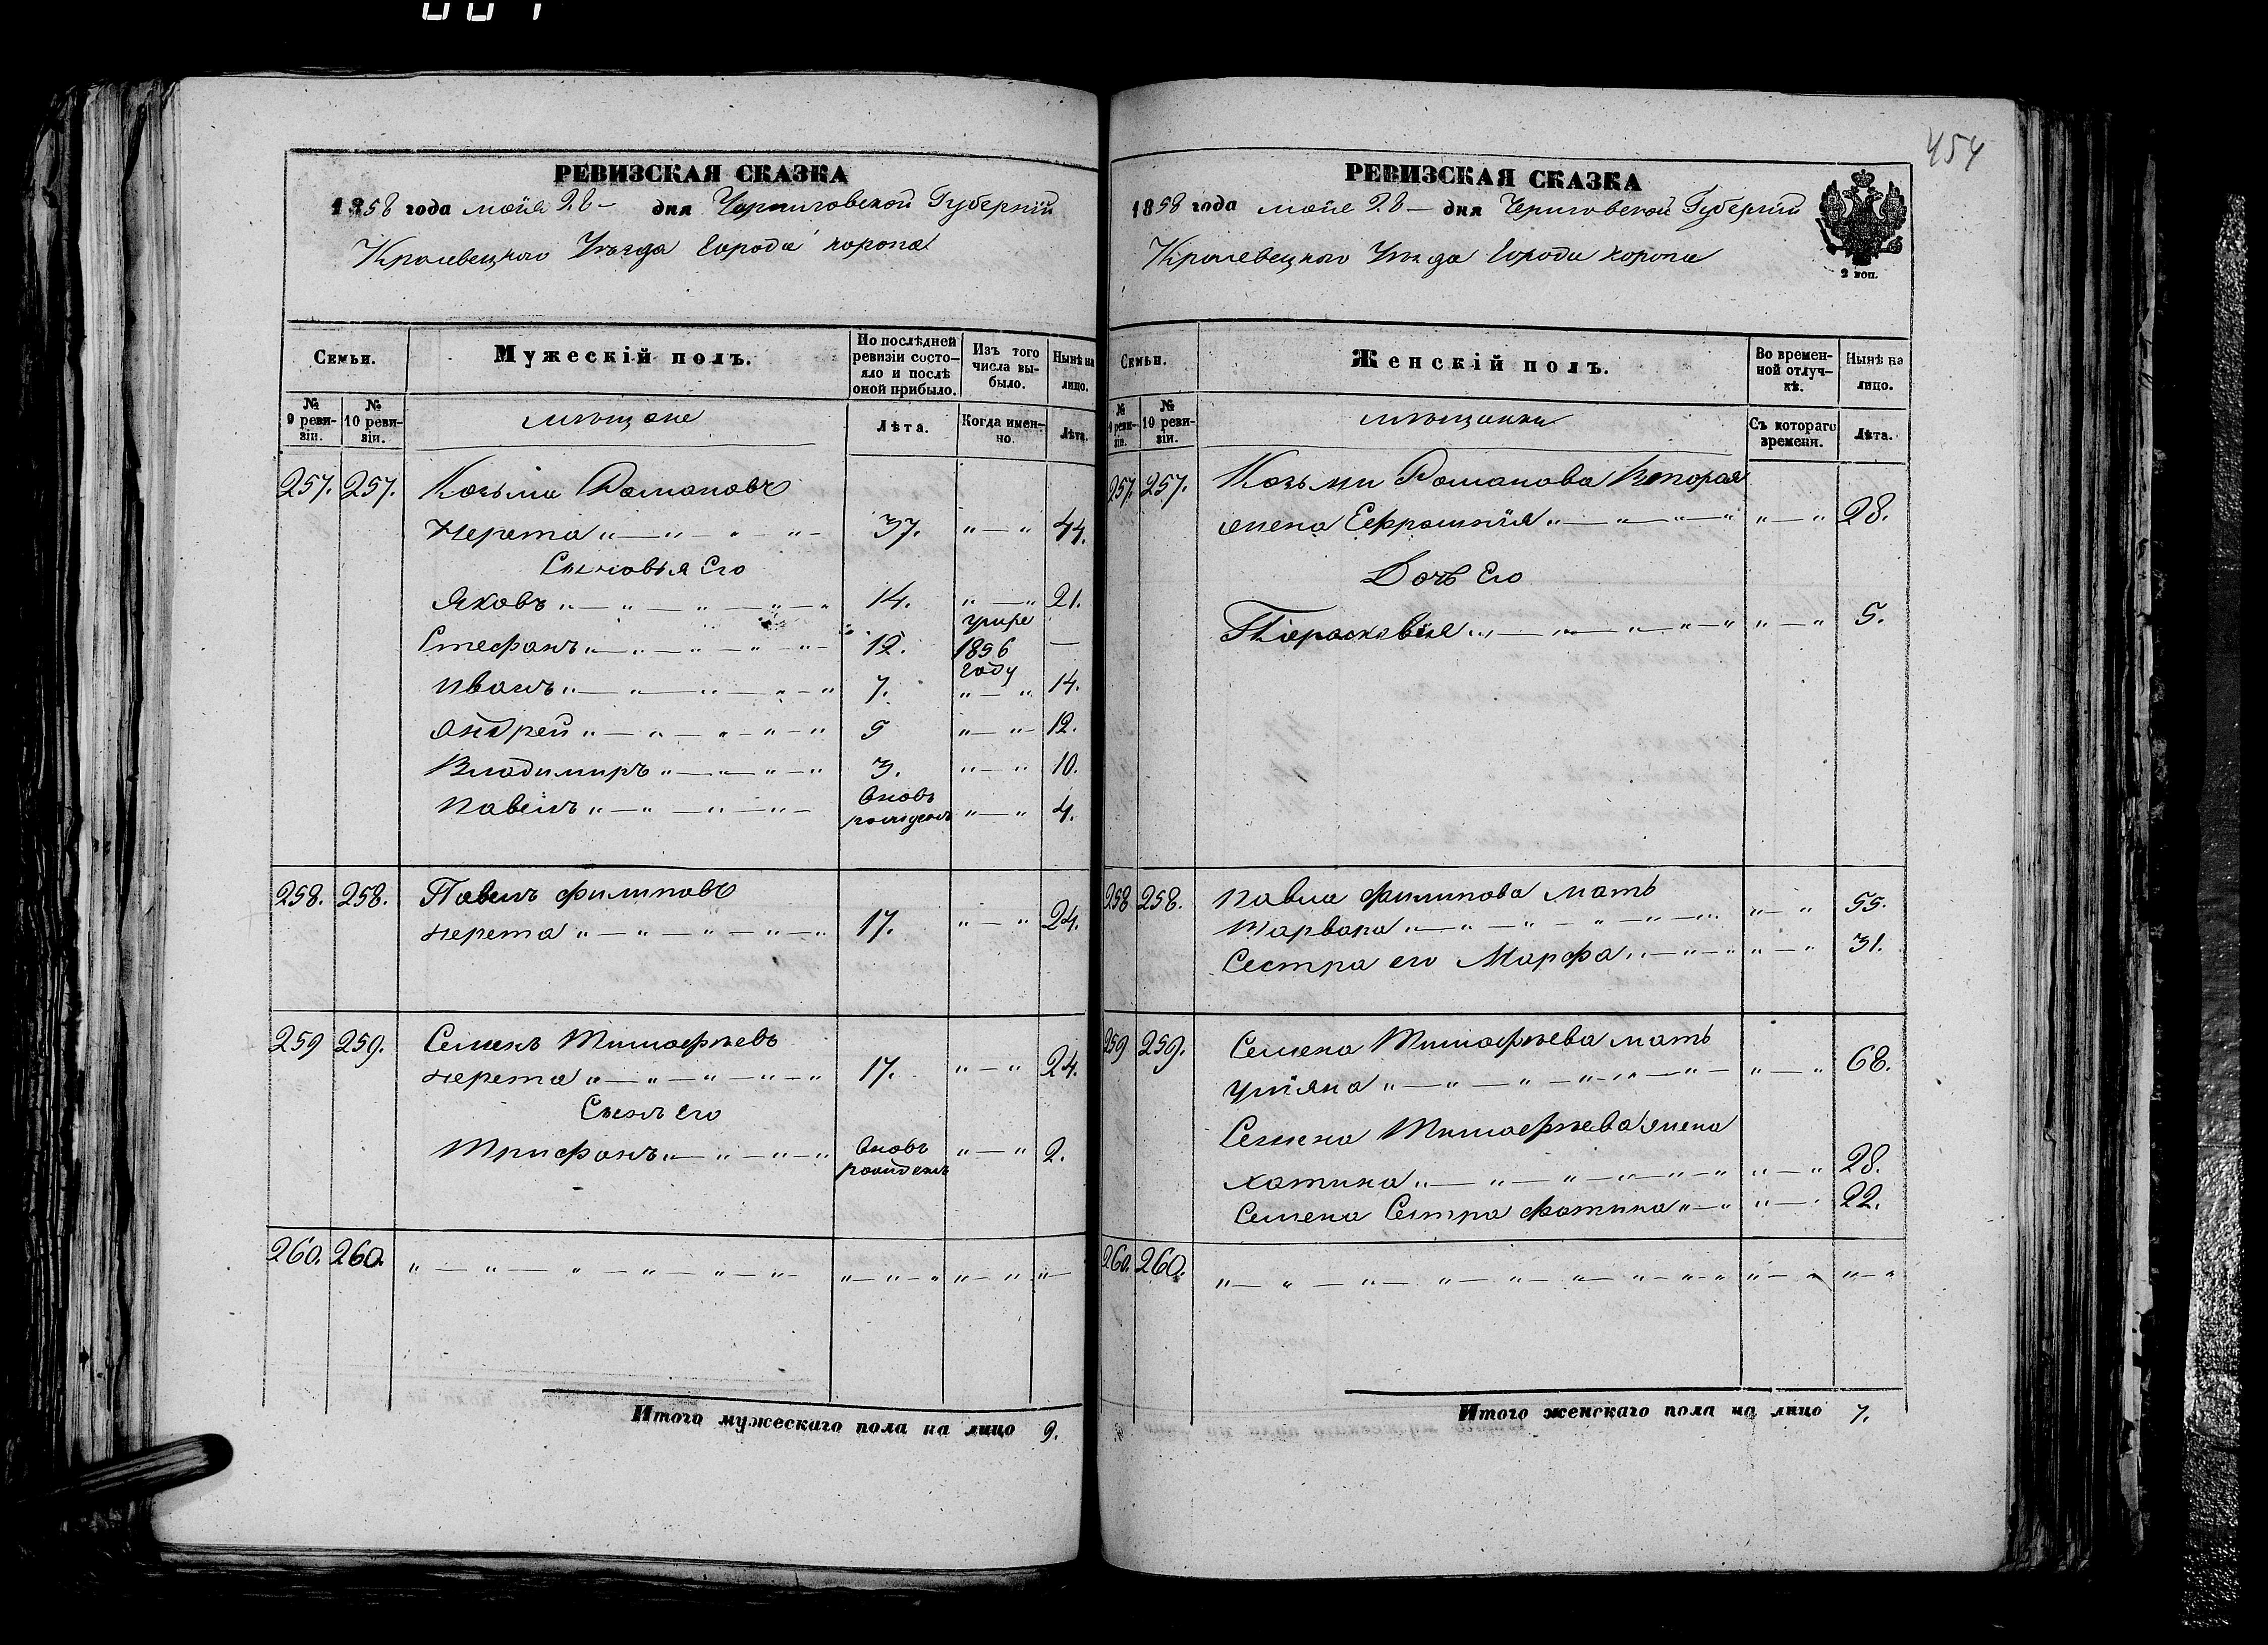 454
РЕВИЗСКАЯ СКАЗКА
1858 года мая 28 — дня Черниговской Губерніи
Кролевецкого Уѣзда Города Коропа
Семьи.
Мужескій полъ.
По послѣдней ревизіи состояло и послѣ оной прибыло.
Изъ того числа выбыло.
Нынѣ на лицо.
№ 9 ревизіи.
№ 10 ревизіи.
мѣщане
Лѣта.
Когда именно.
Лѣта.
257. 257. Козьма Романовъ
Черета „ — „ — „ — „ — 37. „ — „ 44.
Сыновья Его
Яковъ „ — „ — „ — „ — „ 14. „ — „ 21.
Стефанъ „ — „ — „ — „ — 12. умре 1856 году —
Иванъ „ — „ — „ — „ — „ 7. „ — „ 14.
Андрей „ — „ — „ — „ — „ 5 „ — „ 12.
Владимиръ „ — „ — „ — „ 3. „ — „ 10.
Павелъ „ — „ — „ — „ — вновь рожденъ „ — „ 4.
258. 258. Павелъ Филиповъ
Черета „ — „ — „ — „ — „ 17. „ — „ 24.
259 259. Семенъ Тимофѣевъ
Черета „ — „ — „ — „ — „ 17. „ — „ 24.
Сынъ его
Трифонъ „ — „ — „ — „ вновь рожденъ „ — „ 2.
260. 260. „ — „ — „ — „ — „ — „ — „ — „ — „ „ — „ „ —
Итого мужескаго пола на лицо 9.
РЕВИЗСКАЯ СКАЗКА
1858 года мая 28 — дня Черниговской Губерніи
Кролевецкого Уѣзда Города Коропа
2 коп.
Семьи.
Женскій полъ.
Во временной отлучкѣ.
Нынѣ на лицо.
№ 9 ревизіи.
№ 10 ревизіи.
мѣщанки
Съ котораго времени.
Лѣта.
257. 257. Козьми Романова Вторая
жена Ефросинія „ — „ — „ — „ „ — „ 28.
Дочь Его
Параскевія „ — „ — „ — „ — „ „ — „ 5.
258 258. Павла Филипова мать
Варвара „ — „ — „ — „ — „ — „ „ — „ 55.
Сестра его Марфа „ — „ — „ „ — „ 31.
259 259. Семена Тимофѣева мать
Уліяна „ — „ — „ — „ — „ — „ — „ — „ 68.
Семена Тимофѣева жена
„ — „ — „ — „ — „ — „ „ — „ 28.
Семена Сестра Фотина „ — „ „ — „ 22.
260. 260. „ — „ — „ — „ — „ — „ — „ — „ — „ „ — „ „ — „
Итого женскаго пола на лицо 7.